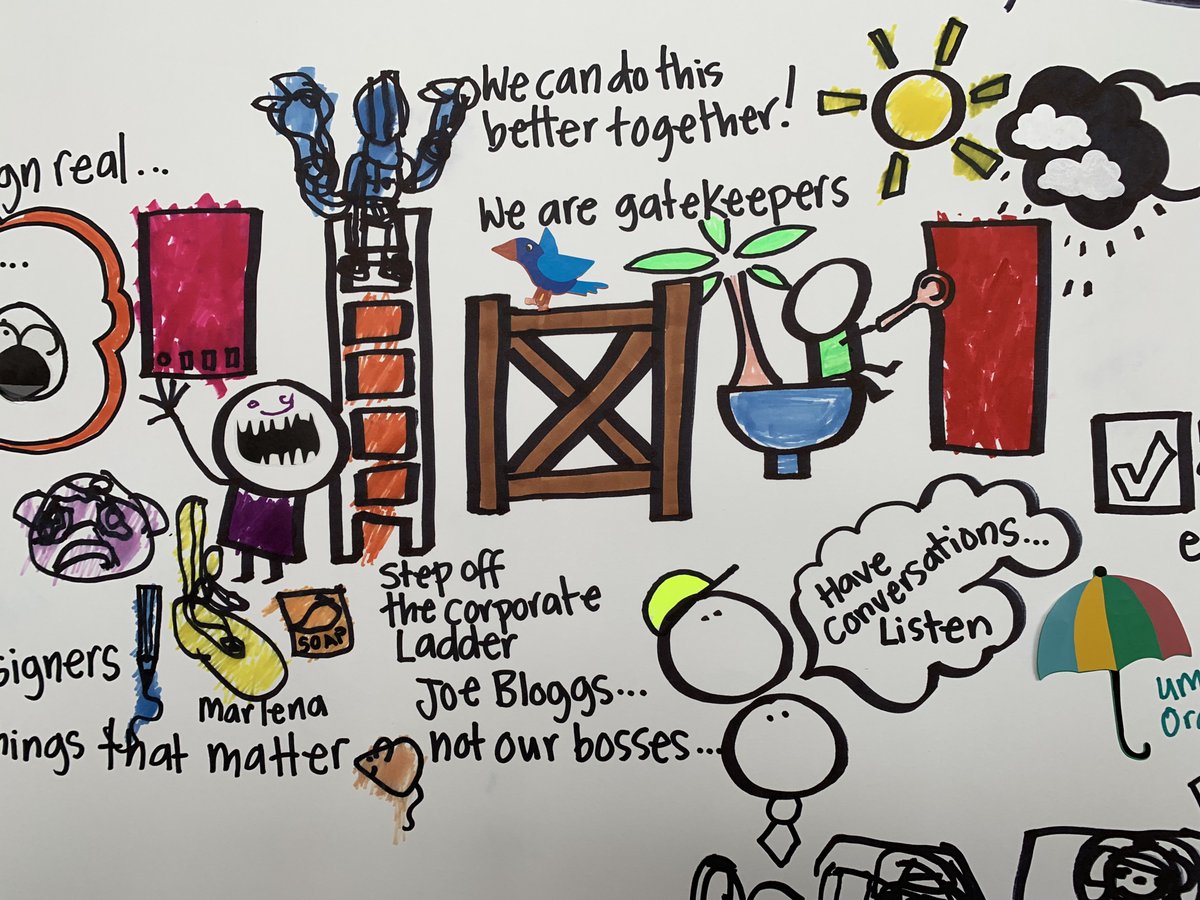 We can do this
better together!
gn real...
We are gatekeepers
...
Have
conversations...
Listen
step off
the corporate
Ladder
SOAP
signers
marlena
Joe Bloggs...
nings that matter
not our bosses...
um
Or
e